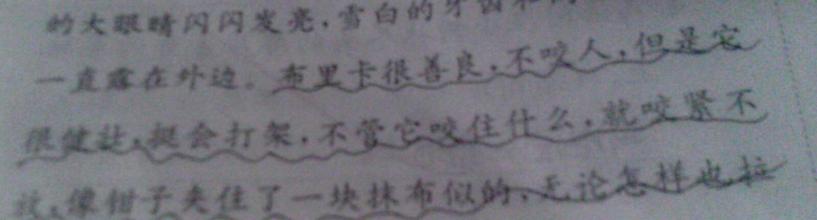 的大眼睛闪闪发亮，雪白的牙齿和
一直露在外边。布里卡很善良，不咬人，但是它
很健壮，挺会打架，不管它咬住什么，就咬紧不
放，像钳子夹住了一块抹布似的，无论怎样也拉